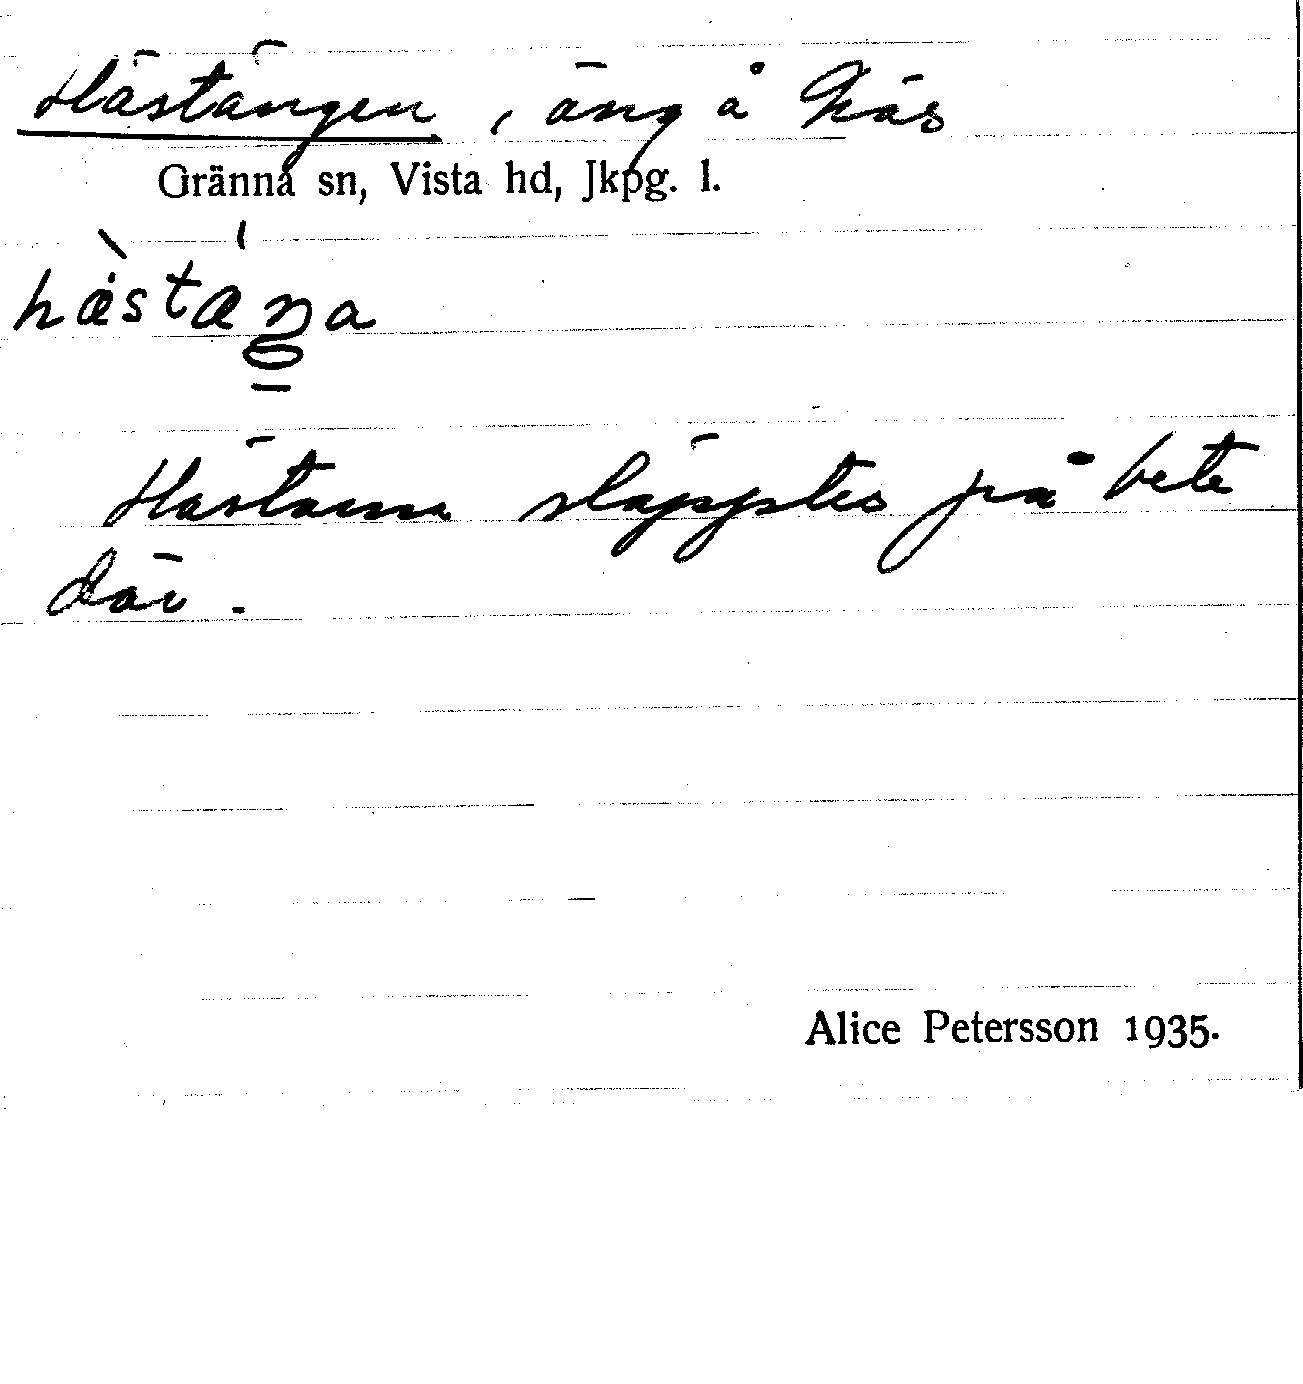 Hästängen, äng å Näs
Gränna sn, Vista hd, Jkpg. l.
hæ̀stǽŋa
Hästarna släpptes på bete
där.
Alice Petersson 1935.